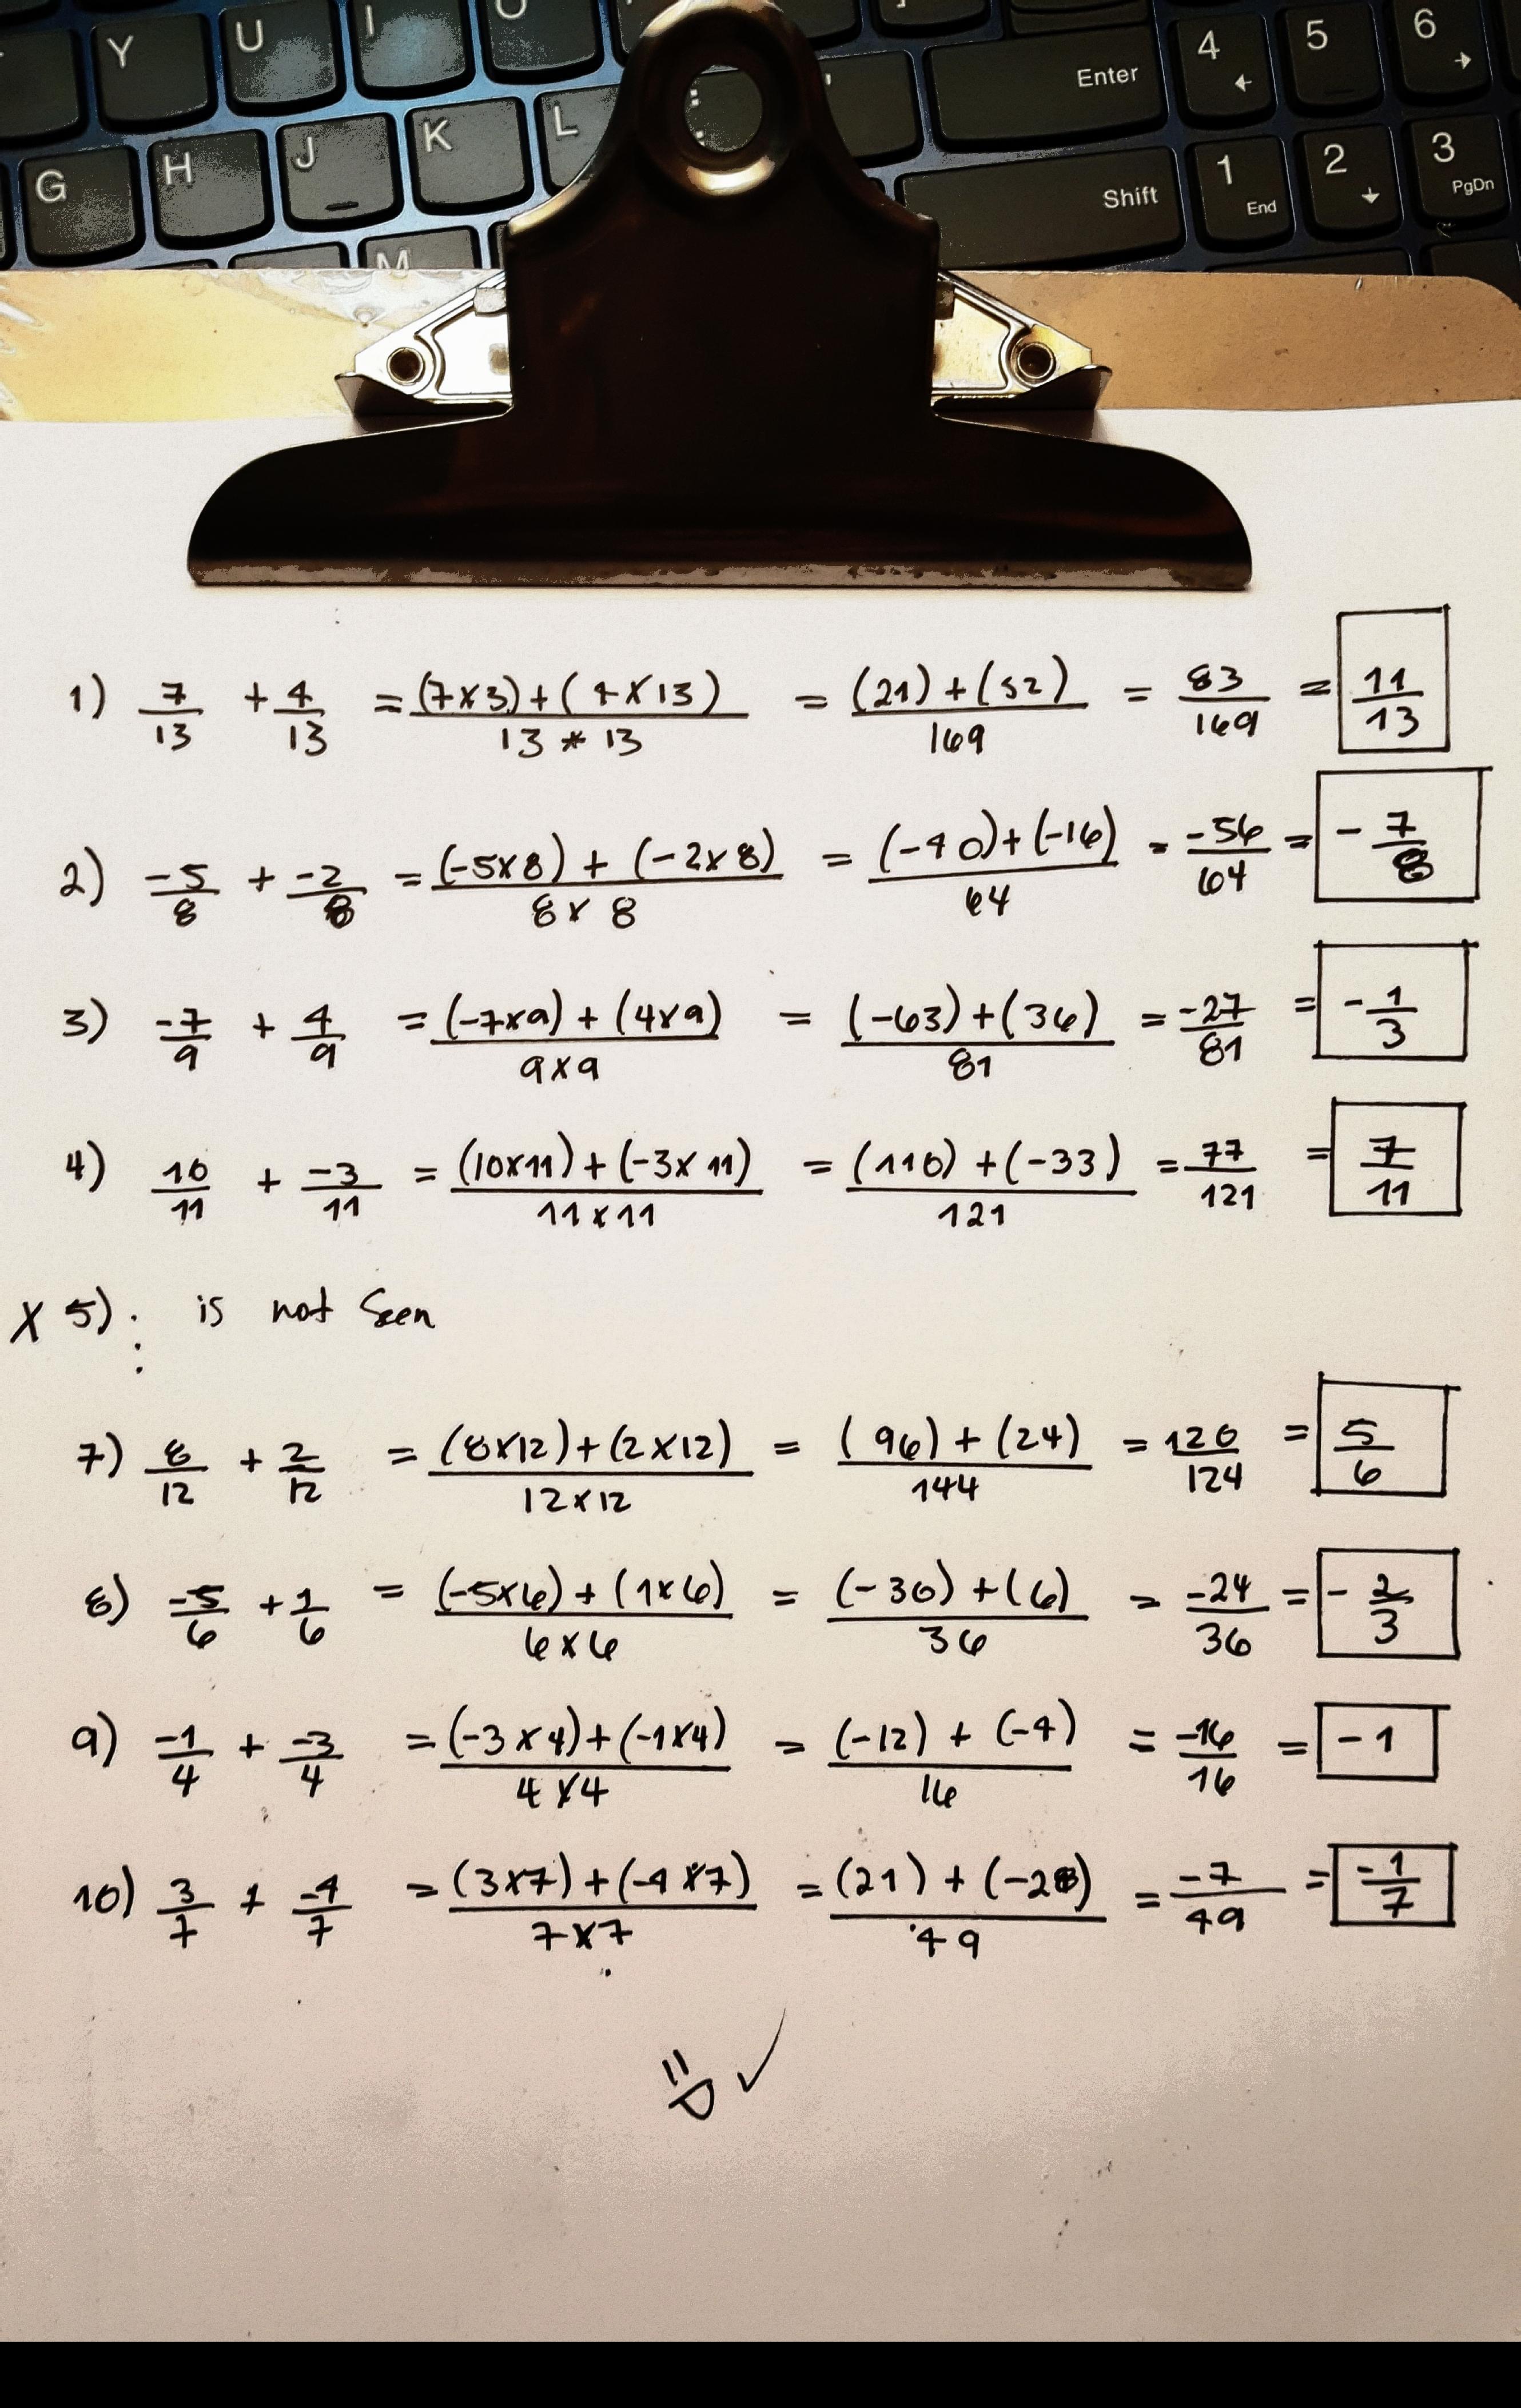 Y U I O 4 5 6
Enter
G H J K L : ' Shift 1 End 2 3 PgDn
M
1) 7/13 + 4/13 = (7x3)+(4x13)/13*13 = (21)+(52)/169 = 83/169 = 11/13
2) -5/8 + -2/8 = (-5x8)+(-2x8)/8x8 = (-40)+(-16)/64 = -56/64 = -7/8
3) -7/9 + 4/9 = (-7x9)+(4x9)/9x9 = (-63)+(36)/81 = -27/81 = -1/3
4) 10/11 + -3/11 = (10x11)+(-3x11)/11x11 = (110)+(-33)/121 = 77/121 = 7/11
X 5) : is not Seen
7) 8/12 + 2/12 = (8x12)+(2x12)/12x12 = (96)+(24)/144 = 120/124 = 5/6
8) -5/6 + 1/6 = (-5x6)+(1x6)/6x6 = (-30)+(6)/36 = -24/36 = -2/3
9) -1/4 + -3/4 = (-3x4)+(-1x4)/4x4 = (-12)+(-4)/16 = -16/16 = -1
10) 3/7 + -4/7 = (3x7)+(-4x7)/7x7 = (21)+(-28)/49 = -7/49 = -1/7